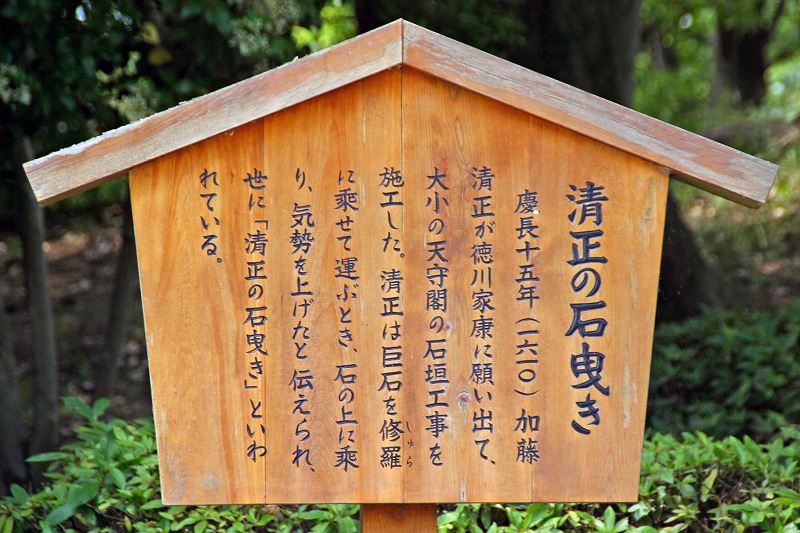 清正の石曳き
慶長十五年(一六一〇)加藤
清正が徳川家康に願い出て、
大小の天守閣の石垣工事を
施工した。清正は巨石を修羅
しゅら
に乗せて運ぶとき、石の上に乗
り、気勢を上げたと伝えられ、
世に「清正の石曳き」といわ
れている。